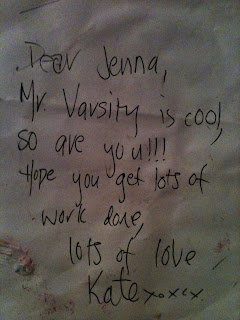 Dear Jenna,
Mr. Varsity is cool,
so are you!!!
Hope you get lots of
work done,
lots of love
Kate xoxcx